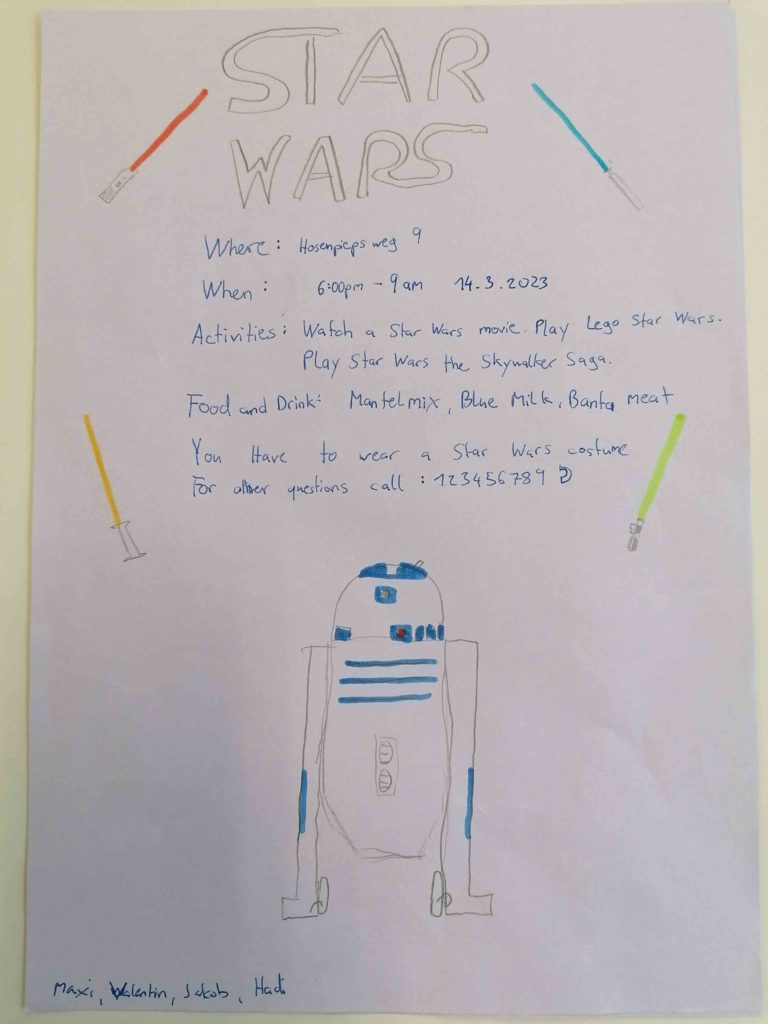 STAR
WARS
Where: Hosenpieps weg 9
When: 6:00pm - 9am 14.3.2023
Activities: Watch a Star Wars movie. Play Lego Star Wars.
Play Star Wars the Skywalker Saga.
Food and Drink: Mantelmix, Blue Milk, Banta meat
You Have to wear a Star Wars costume
For questions call : 123456789
Maxi, Valentin, Jakob, Hadi